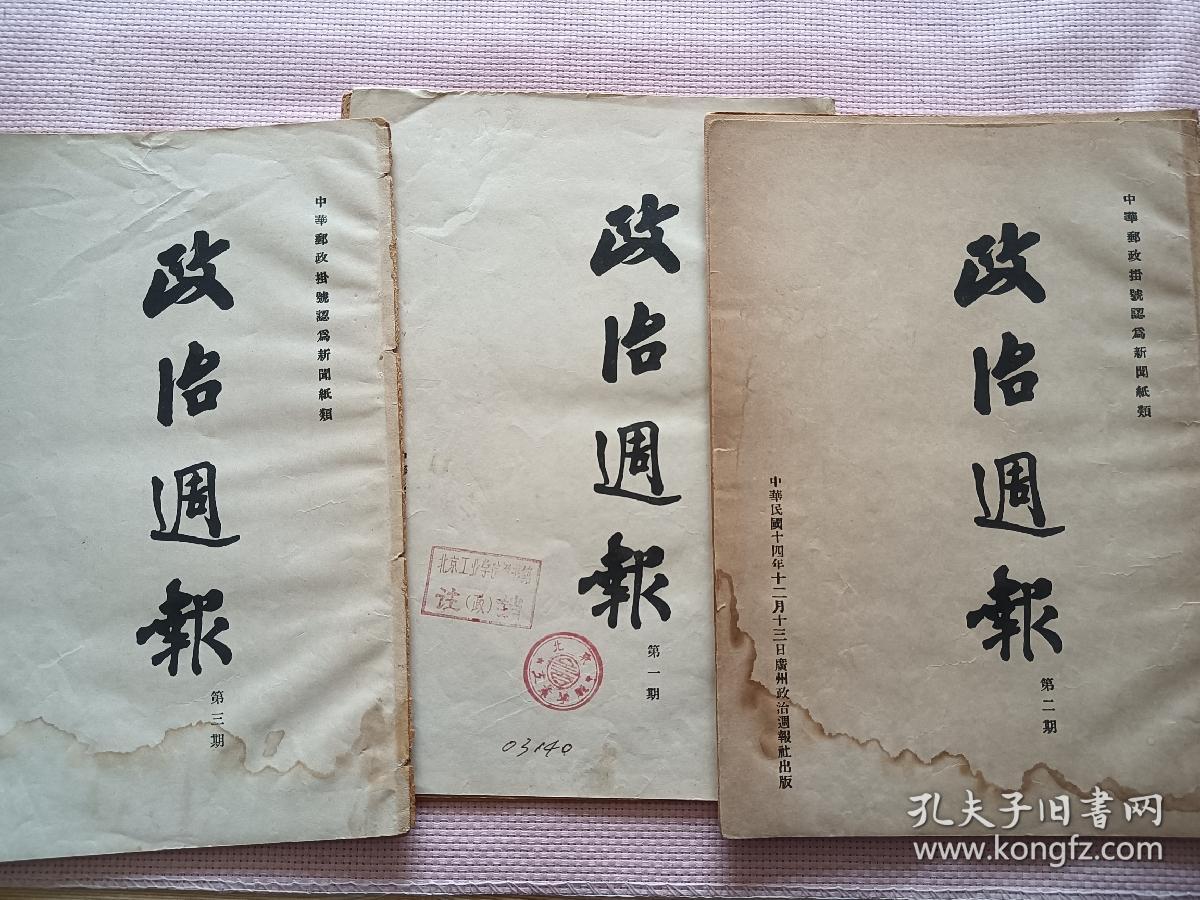 中華郵政掛號認爲新聞紙類
政治週報
第三期
政治週報
第一期
北京工业学院图书館
注(政)
03140
中華郵政掛號認爲新聞紙類
政治週報
第二期
中華民國十四年十二月十三日廣州政治週報社出版
孔夫子旧书网
www.kongfz.com